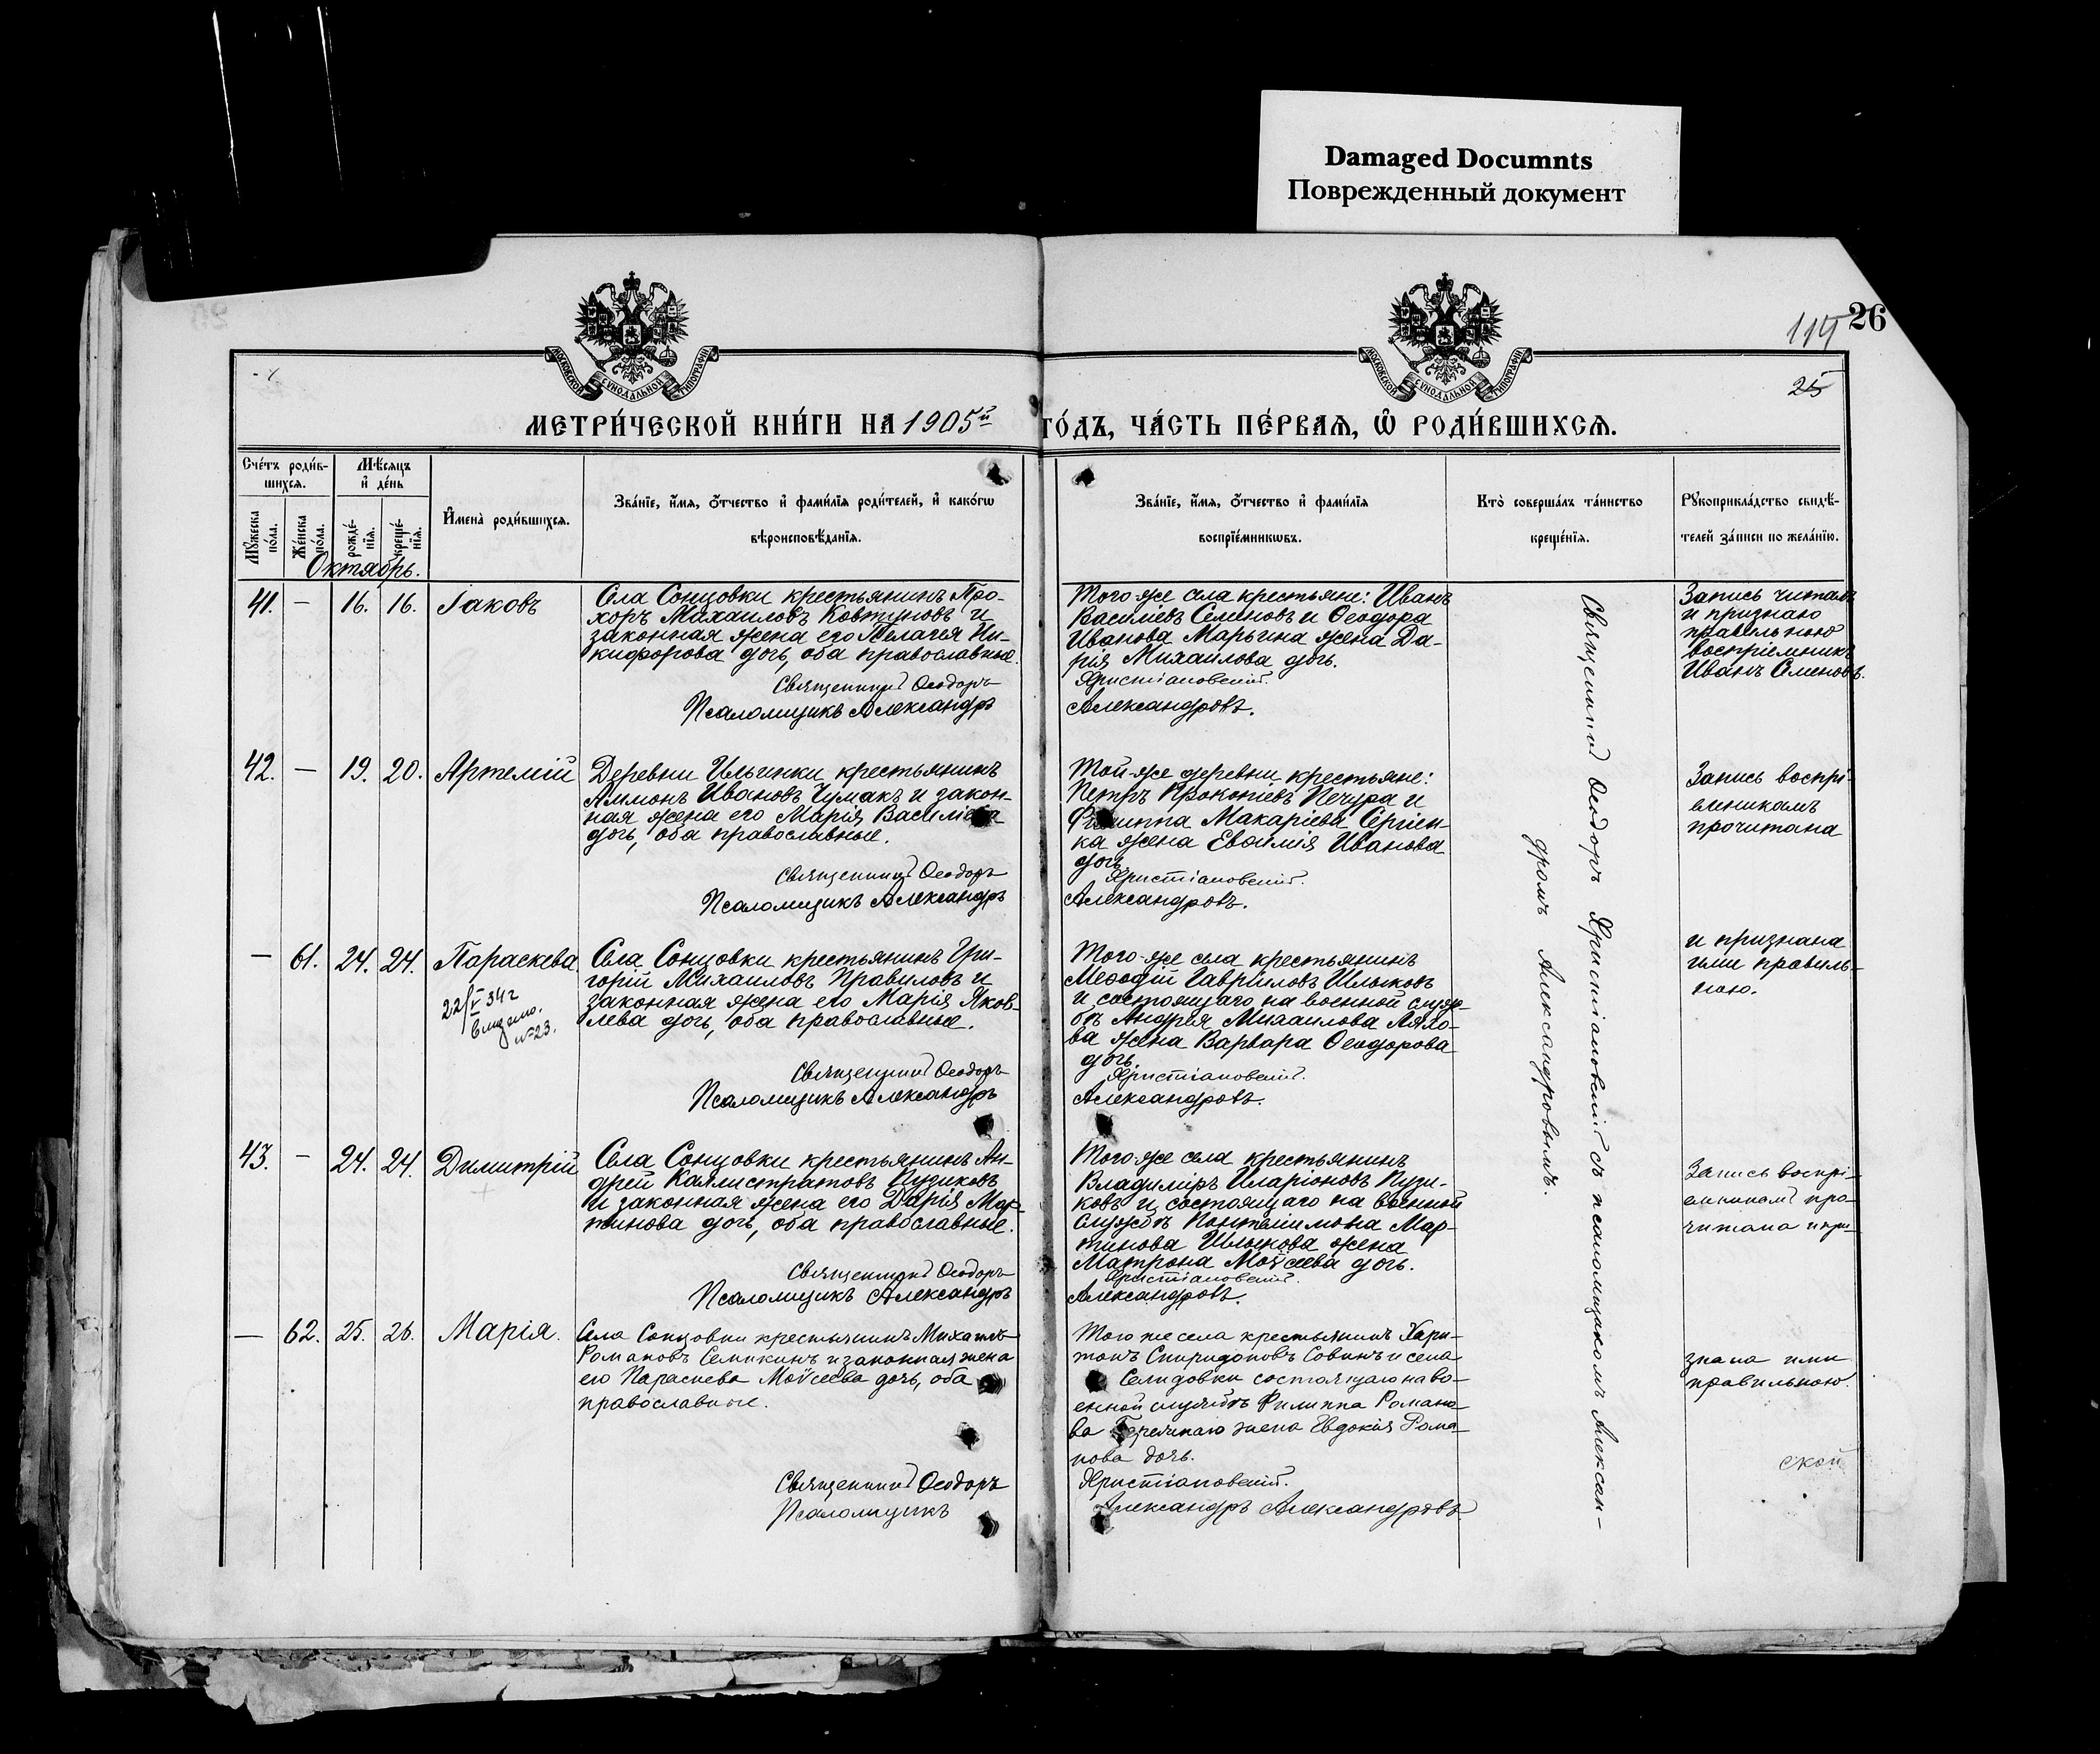 Damaged Documnts
Поврежденный документ
26
114
25
МОСКОВСКОЙ СѴНОДАЛЬНОЙ ТИПОГРАФІИ
МОСКОВСКОЙ СѴНОДАЛЬНОЙ ТИПОГРАФІИ
МЕТРИ́ЧЕСКОЙ КНИ́ГИ НА 1905й ГО́ДЪ, ЧА́СТЬ ПЕ́РВАЯ, Ѡ РОДИ́ВШИХСЯ.
Сче́тъ роди́в-
шихся.
Мѣ́сяцъ
и де́нь
Мꙋ́жеска
по́ла.
Же́нска
по́ла.
рожде́-
нія.
креще́-
нія.
И҆мена̀ роди́вшихся.
Зва́нїе, и҆́мя, ѻ҆́тчество и҆ фами́лїя роди́телей, и҆ како́гѡ
вѣроисповѣ́данїя.
Зва́нїе, и҆́мя, ѻ҆́тчество и҆ фами́лїя
воспрїе́мникѡвъ.
Кто̀ соверша́лъ та́инство
креще́нїя.
Рꙋкоприкла́дство свидѣ́-
телей за́писи по жела́нїю.
Октябрь.
41. — 16. 16. Іаковъ
Села Сонцовки крестьянинъ Про-
хоръ Михаиловъ Ковтуновъ и
законная жена его Пелагея Ни-
кифорова дочь, оба православные.
Священникъ Ѳеодоръ
Псаломщикъ Александръ
Того-же села крестьяне: Иванъ
Василіевъ Семеновъ и Ѳеодора
Иванова Марьина жена Да-
рія Михаилова дочь.
Христіановскій.
Александровъ.
Запись читалъ
и признаю
правильною
воспріемникъ
Иванъ Семеновъ.
42. — 19. 20. Артемій
Деревни Ильинки крестьянинъ
Аммонъ Ивановъ Чумакъ и закон-
ная жена его Марія Василіева
дочь, оба православные.
Священникъ Ѳеодоръ
Псаломщикъ Александръ
Той-же деревни крестьяне:
Петръ Прокопіевъ Печура и
Филиппа Макаріева Сергіен-
ка жена Евѳимія Иванова
дочь.
Христіановскій.
Александровъ.
Запись воспрі-
емникамъ
прочитана
— 61. 24. 24. Параскева
22/V 34 г
№ 23.
Села Сонцовки крестьянинъ Гри-
горій Михаиловъ Правиловъ и
законная жена его Марія Яков-
лева дочь, оба православные.
Священникъ Ѳеодоръ
Псаломщикъ Александръ
Того-же села крестьянинъ
Меѳодій Гавріиловъ Шлыковъ
и состоящаго на военной служ-
бѣ Андрея Михаилова Ляхо-
ва жена Варвара Ѳеодорова
дочь.
Христіановскій.
Александровъ.
и признана
ими правиль-
ною.
43. — 24. 24. Димитрій
Села Сонцовки крестьянинъ Ан-
дрей Каллистратовъ Пузиковъ
и законная жена его Дарія Мар-
тинова дочь, оба православные.
Священникъ Ѳеодоръ
Псаломщикъ Александръ
Того-же села крестьянинъ
Владиміръ Иларіоновъ Пузи-
ковъ и состоящаго на военной
службѣ Пантелиимона Мар-
тинова Шлыкова жена
Матрона Моѵсеева дочь.
Христіановскій.
Александровъ.
Запись воспрі-
емникамъ про-
читана и при-
— 62. 25. 26. Марія.
Села Сонцовки крестьянинъ Михаилъ
Романовъ Семикинъ и законная жена
его Параскева Моѵсеева дочь, оба
православные.
Священникъ Ѳеодоръ
Псаломщикъ
Того же села крестьянинъ Хари-
тонъ Спиридоновъ Совинъ и села
Селидовки состоящаго на во-
енной службѣ Филиппа Романо-
ва жена Евдокія Рома-
нова дочь.
Христіановскій.
Александръ Александровъ
знана ими
правильною.
ской
Священникъ Ѳеодоръ Христіановскій съ псаломщикомъ Александ-
дромъ Александровымъ.